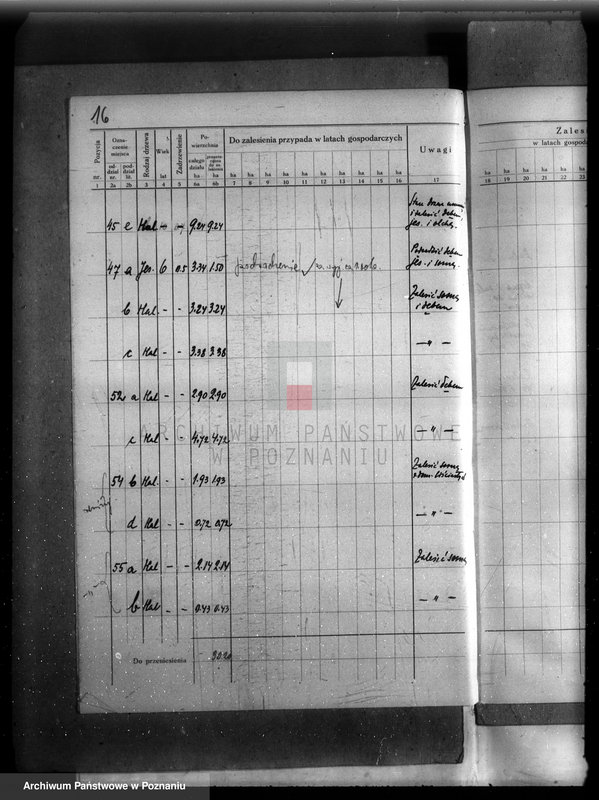 16
Pozycja nr.
Oznaczenie miejsca
oddział nr.
poddział lit.
Rodzaj drzewa
Wiek lat
Zadrzewienie
Powierzchnia
całego działu ha
Do zalesienia przypada w latach gospodarczych
ha ha ha ha ha ha ha ha ha ha
Uwagi
1 2a 2b 3 4 5 6a 6b 7 8 9 10 11 12 13 14 15 16 17
45 e Hal. - - 9.24 9.24
i zalesić dębem,
jes. i olchą.
47 a Jes. 6 0.5 3.34 1.50
jes. i sosną.
b Hal. - - 3.24 3.24 Zalesić sosną
i dębem
c Hal - - 3.38 3.38 — " —
52 a Hal - - 2.90 2.90 Zalesić dębem
c Hal - - 4.72 4.72 — " —
54 b Hal. - - 1.93 1.93 Zalesić sosną
d Hal - - 0.72 0.72 — " —
55 a Hal - - 2.14 2.14 Zalesić sosną
b Hal - - 0.43 0.43 — " —
Do przeniesienia
Zales
w latach gospoda
ha ha ha ha ha ha
18 19 20 21 22 23
ARCHIWUM PAŃSTWOWE
W POZNANIU
Archiwum Państwowe w Poznaniu